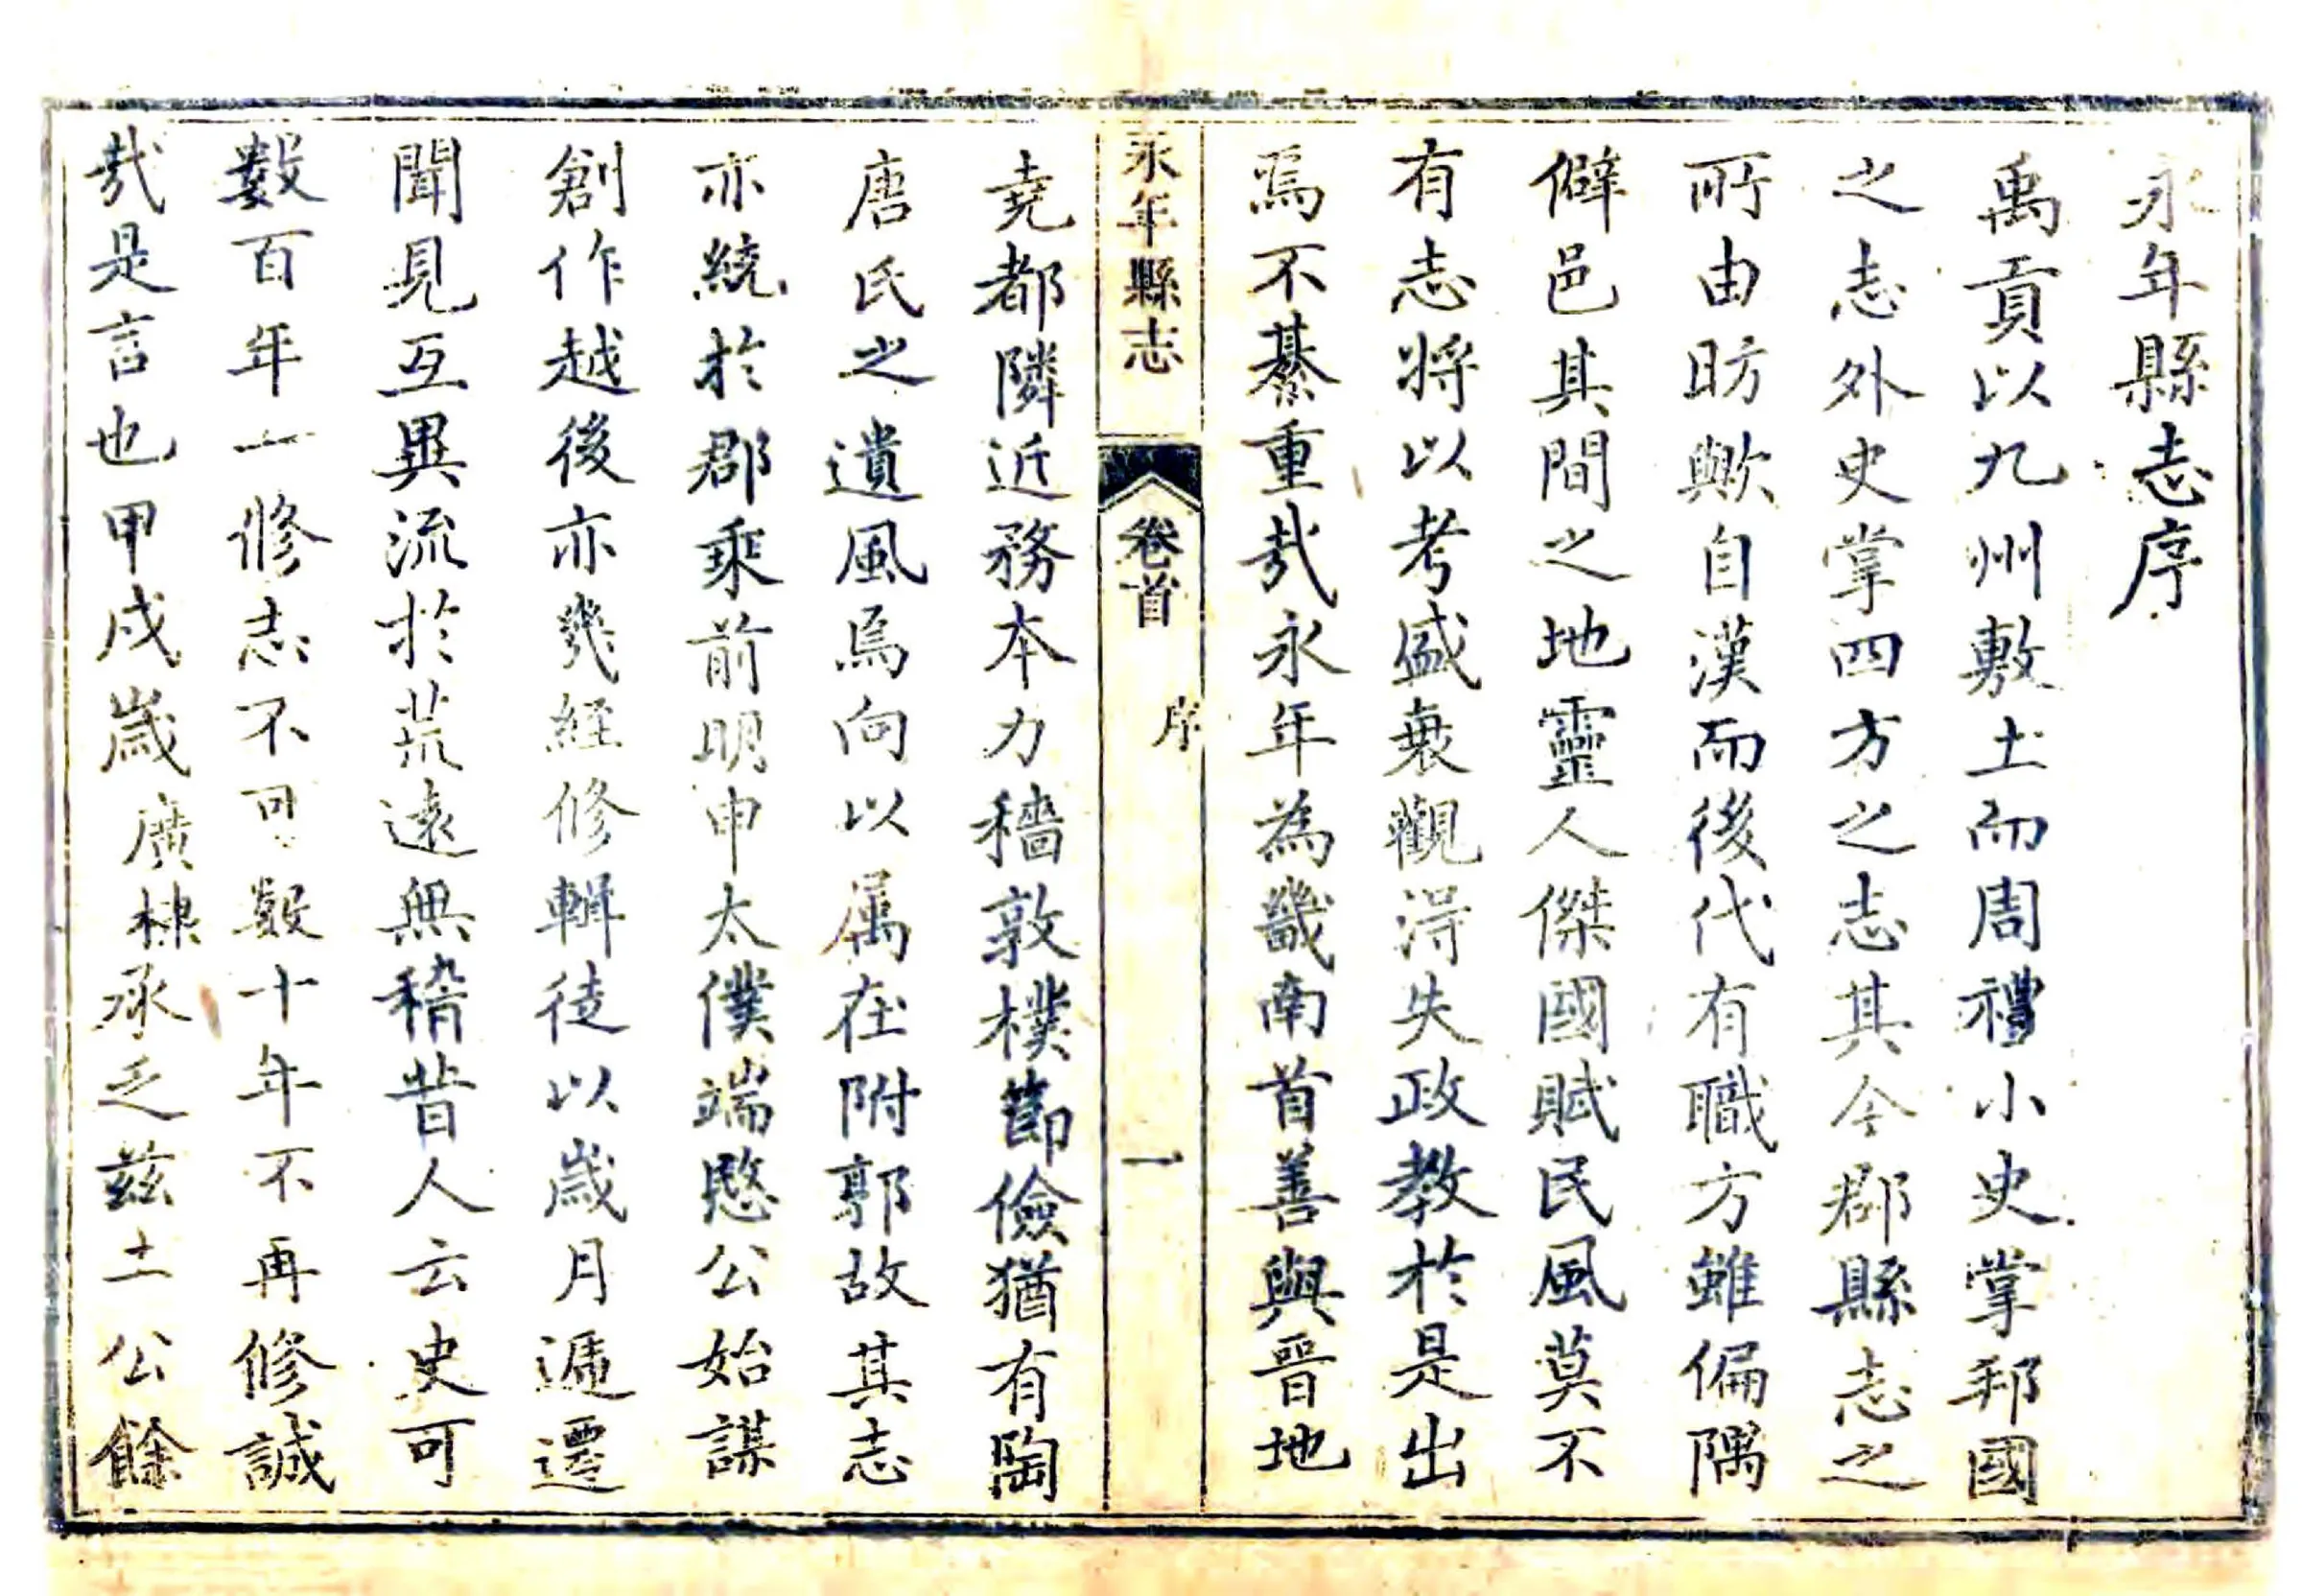 永年縣志序
禹貢以九州敷土而周禮小史掌邦國
之志外史掌四方之志其今郡縣志之
所由昉歟自漢而後代有職方雖偏隅
僻邑其間之地靈人傑國賦民風莫不
有志將以考盛衰觀淂失政教於是出
焉不綦重㢤永年為畿南首善與晉地
永年縣志 卷首 序 一
堯都隣近務本力穡敦樸節儉猶有陶
唐氏之遺風焉向以属在附郭故其志
亦統於郡乘前明申太僕端愍公始謀
創作越後亦幾經修輯徒以歲月遞遷
聞見互異流於荒遠無稽昔人云史可
數百年一修志不可數十年不再修誠
㢤是言也甲戌歲廣棣承乏茲土公餘